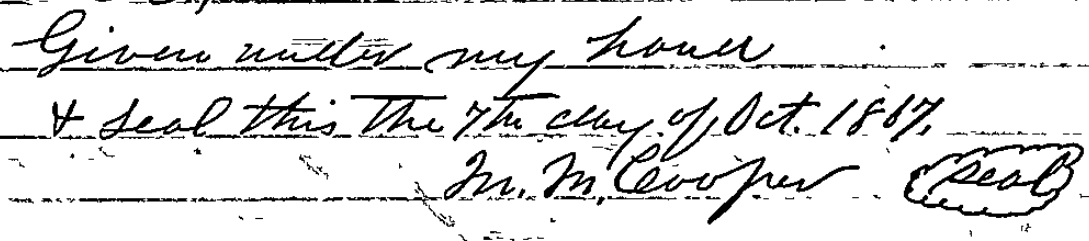 Given under my hand
& seal this the 7th day of Oct. 1867.
M. M. Cooper seal